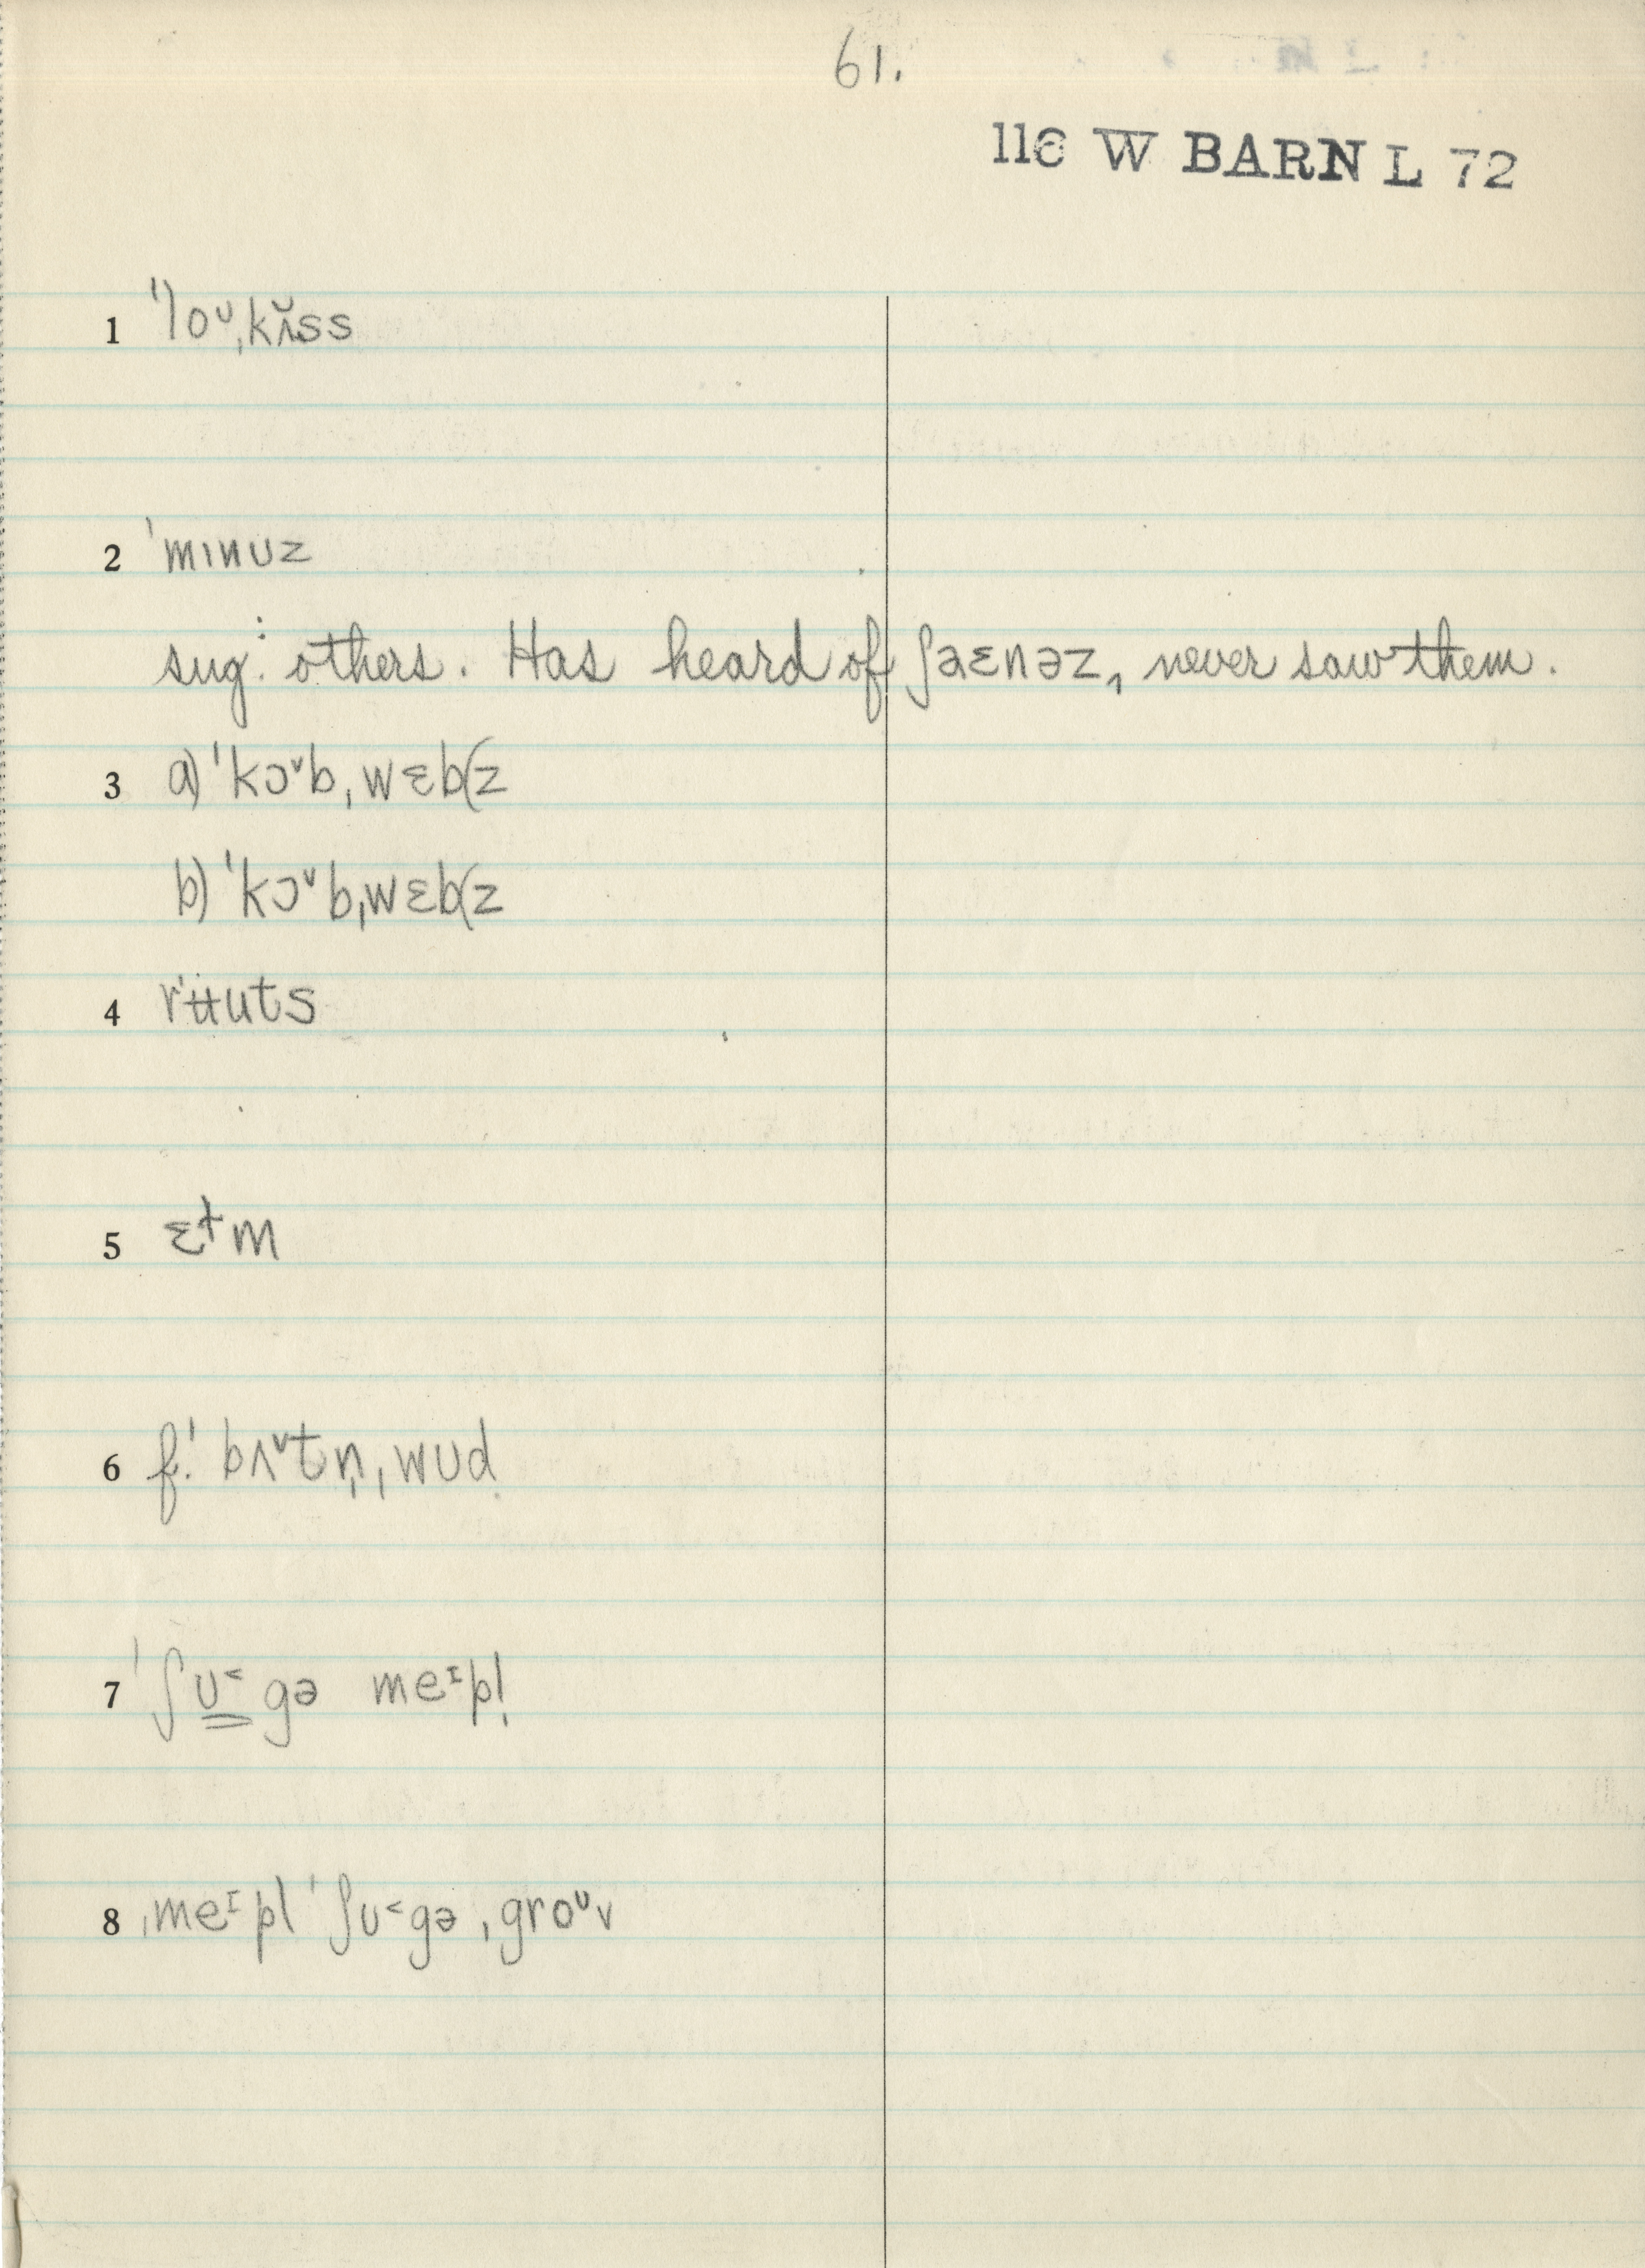 61.
116 W BARN L 72
1 ˈloᶷˌkʌ̆ss
2 ˈmɪnuz
sug: others. Has heard of ʃaɛnəz, never saw them.
3 a) ˈkɔᵛbˌwɛb(z
b) ˈkɔᵛbˌwɛb(z
4 rʉuts
5 ɛɫm
6 f! bʌᵛtn̩ˌwud
7 ˈʃᴜ˂gə meᶦpl̩
8 ˌmeᶦpl ˈʃᴜ˂gəˌgroᶷv